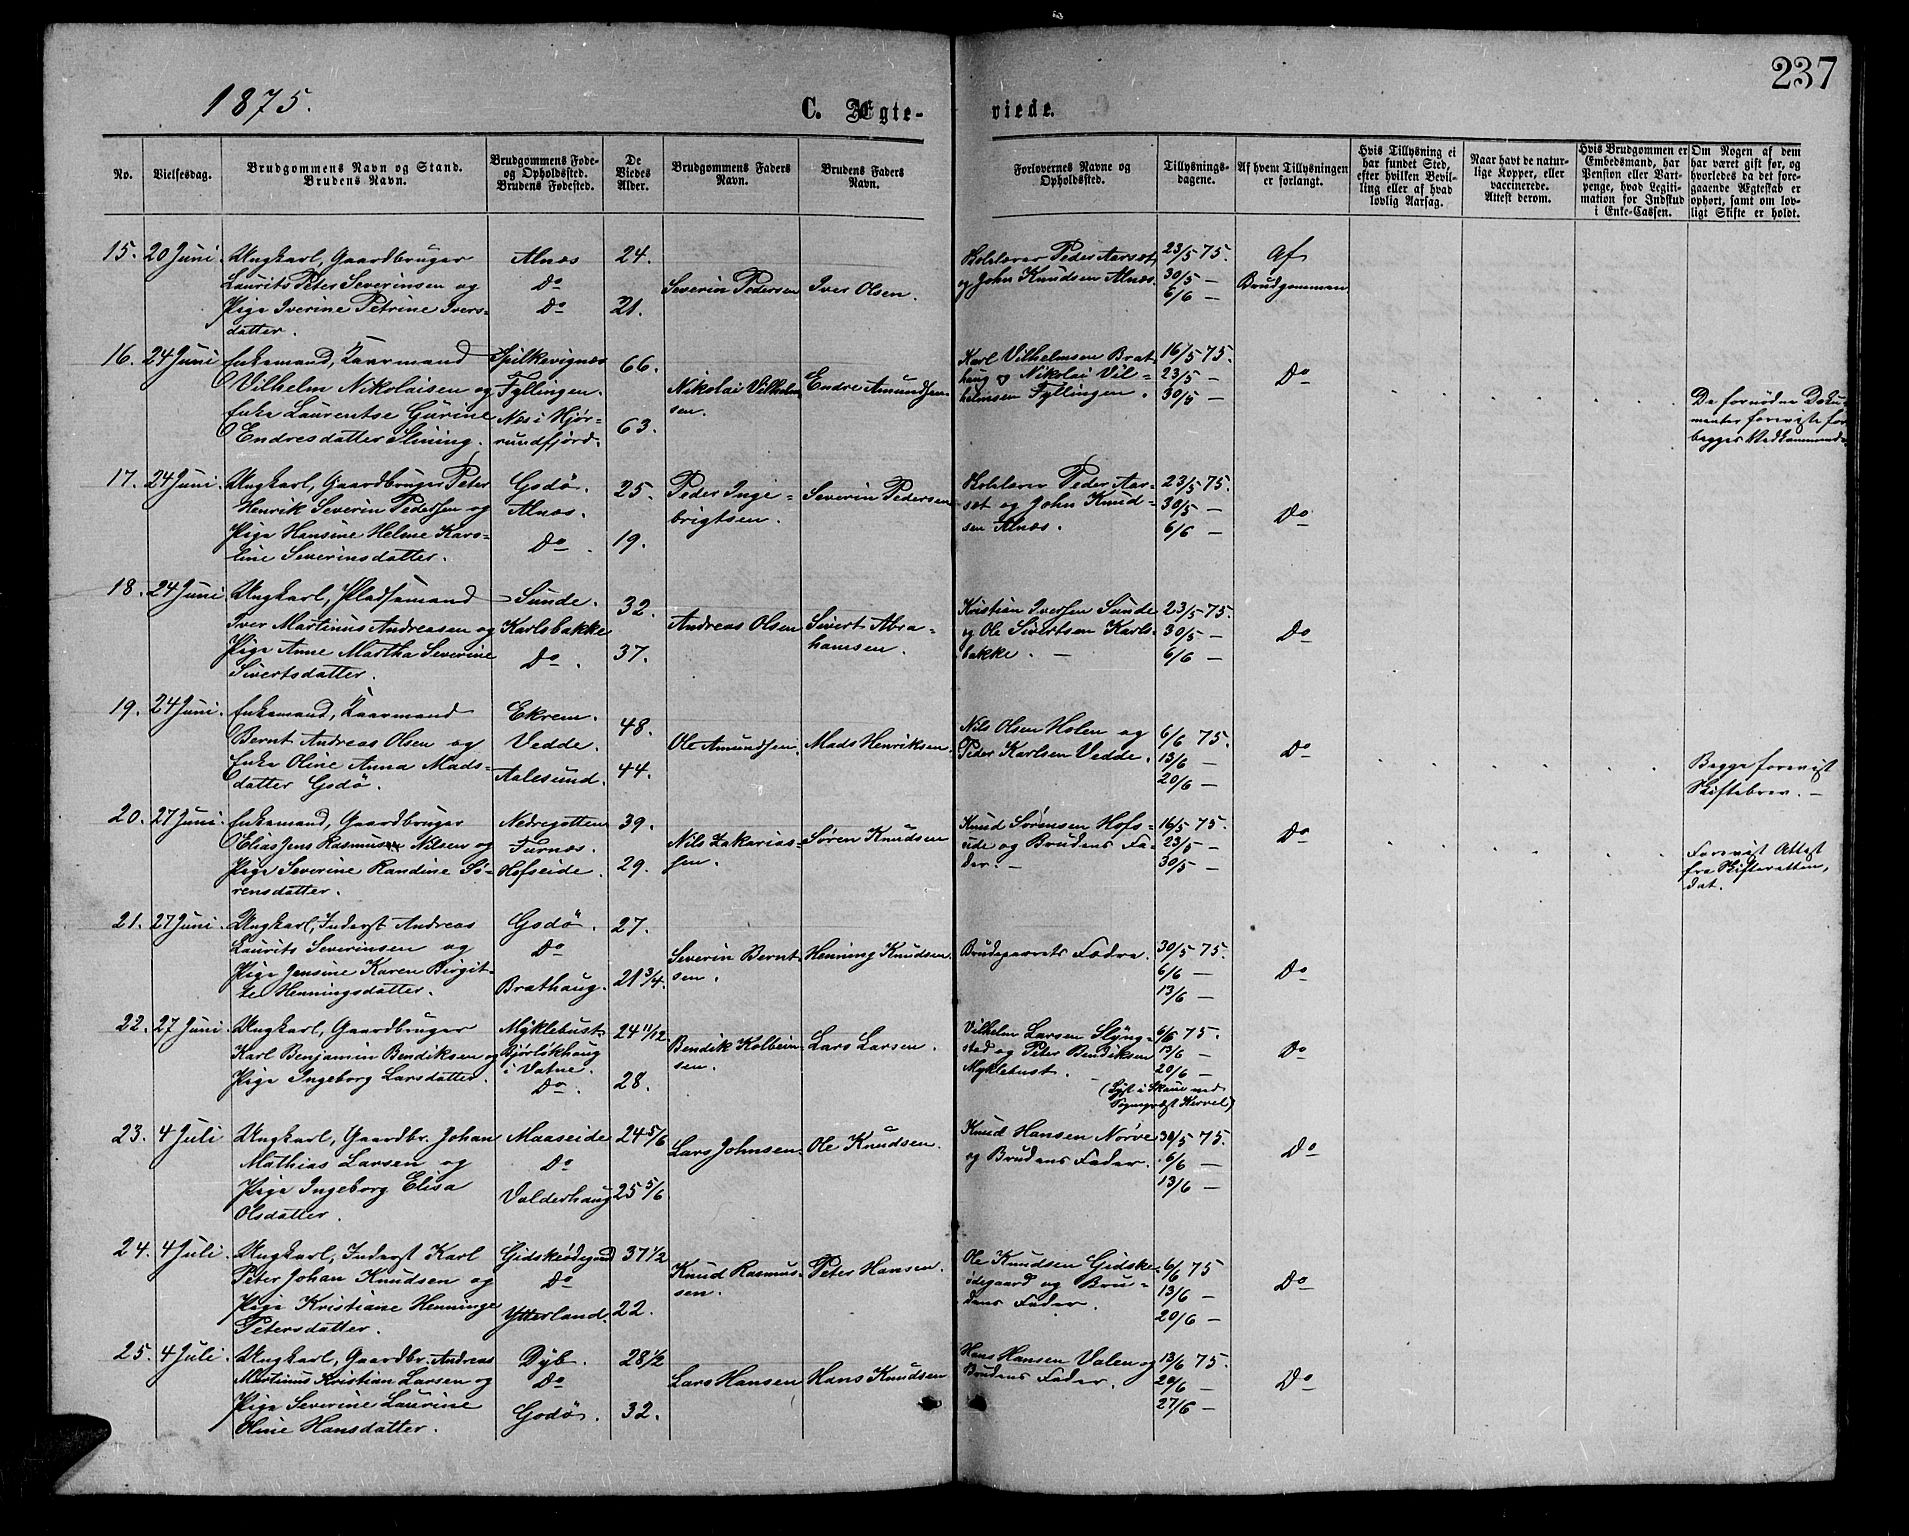 237
1875.
C. Ægte-
viede.
No.
Vielsesdag.
Brudgommens Navn og Stand.
Brudens Navn.
Brudgommens Føde-
og Opholdssted.
Brudens Fødested.
De
Viedes
Alder.
Brudgommens Faders
Navn.
Brudens Faders
Navn.
Forlovernes Navne og
Opholdssted.
Tillysnings-
dagene.
Af hvem Tillysningen
er forlangt.
Hvis Tillysning ei
har fundet Sted,
efter hvilken Bevil-
ling eller af hvad
lovlig Aarsag.
Naar havt de natur-
lige Kopper, eller
vaccinerede.
Attest derom.
Hvis Brudgommen er
Embedsmand, har
Pension eller Vart-
penge, hvad Legiti-
mation for Indskud
i Enke-Cassen.
Om Nogen af dem
har været gift før, og
hvorledes da det fore-
gaaende Ægteskab er
ophørt, samt om lov-
ligt Skifte er holdt.
15. 20 Juni
Ungkarl, Gaardbruger
Laurits Peter Severinsen og
Pige Iverine Petrine Ivers-
datter.
Alnæs
Do
Do
24.
21.
Severin Pedersen
Iver Olsen.
Kolelærer Peder Aarset
og John Knudsen Alnæs.
23/5 75.
30/5 —
6/6 —
Af
Brudgommen
16. 24 Juni
Enkemand, Kaarmand
Vilhelm Nikolaisen og
Enke Laurentse Gurine
Endresdatter Slining.
Spilkevignæs
Fyllingen.
Næs i Hjør-
rundfjord.
66.
63.
Nikolai Vilhelm-
sen.
Endre Amundsen.
Karl Vilhelmsen Brat-
haug og Nikolai Vil-
helmsen Fyllingen.
16/5 75.
23/5 —
30/5 —
Do
De fornødne Doku-
menter foreviste for
begges Vedkommende.
17. 24 Juni
Ungkarl, Gaardbruger Peter
Henrik Severin Pedersen og
Pige Hansine Helene Karo-
line Severinsdatter.
Godø.
Alnæs.
Do.
25.
19.
Peder Inge-
brigtsen.
Severin Pedersen
Kolelærer Peder Aar-
set og John Knud-
sen Alnæs.
23/5 75.
30/5 —
6/6 —
Do
18. 24 Juni
Ungkarl, Pladsemand
Iver Martinus Andreasen og
Pige Anne Martha Severine
Sivertsdatter.
Sunde.
Karlsbakke
Do.
32.
37.
Andreas Olsen
Sivert Abra-
hamsen.
Kristian Iversen Sunde
og Ole Sivertsen Karls-
bakke. —
23/5 75.
30/5 —
6/6 —
Do
19. 24 Juni.
Enkemand, Kaarmand
Bernt Andreas Olsen og
Enke Oline Anna Mads-
datter Godø.
Ekrem.
Vedde.
Aalesund.
48.
44.
Ole Amundsen.
Mads Henriksen.
Nils Olsen Holen og
Peder Karlsen Vedde.
6/6 75.
13/6 —
20/6 —
Do
Begge forevist
Skiftebrev. —
20. 27 Juni.
Enkemand, Gaardbruger
Elias Jens Rasmusen Nilsen og
Pige Severine Randine Sø-
rensdatter.
Nedregotten
Furnæs.
Hofseide.
39.
29.
Nils Zakarias-
sen.
Søren Knudsen
Knud Sørensen Hofs-
eide og Brudens Fa-
der. —
16/5 75.
23/5 —
30/5 —
Do
Forevist Attest
fra Skifteretten,
dat.
21. 27 Juni.
Ungkarl, Inderst Andreas
Laurits Severinsen og
Pige Jensine Karen Birgit-
te Henningsdatter.
Godø.
Do
Brathaug.
27.
21 3/4.
Severin Bernt-
sen.
Henning Knudsen.
Brudeparrets Fædre.
30/5 75.
6/6 —
13/6 —
Do
22. 27 Juni.
Ungkarl, Gaardbruger
Karl Benjamin Bendiksen og
Pige Ingeborg Larsdatter.
Myklebust
Bjørlökhaug
i Vatne.
Do.
24 11/12
28.
Bendik Kolbein-
sen.
Lars Larsen.
Vilhelm Larsen Slyng-
stad og Peter Bendiksen
Myklebust. —
6/6 75.
13/6 —
20/6 —
(Lyst i Skoue ved
Sognepræst Hervel)
Do
23. 4 Juli
Ungkarl, Gaardbr. Johan
Mathias Larsen og
Pige Ingeborg Elisa
Olsdatter.
Maaseide
Do
Valderhaug
24 5/6
25 5/6
Lars Johnsen.
Ole Knudsen.
Knud Hansen Nørve
og Brudens Fader.
30/5 75.
6/6 —
13/6 —
Do
24. 4 Juli.
Ungkarl, Inderst Karl
Peter Johan Knudsen og
Pige Kristiane Henninge
Petersdatter.
Gidskeødegrd
Do
Ytterland.
37 1/2
22.
Knud Rasmus-
sen.
Peter Hansen.
Ole Knudsen Gidske-
ødegaard og Bru-
dens Fader.
6/6 75
13/6 —
20/6 —
Do
25. 4 Juli.
Ungkarl, Gaardbr. Andreas
Martinus Kristian Larsen og
Pige Severine Laurine
Oline Hansdatter.
Dyb.
Do
Godø.
28 1/2
32.
Lars Hansen
Hans Knudsen
Hans Hansen Valen og
Brudens Fader.
13/6 75.
20/6 —
27/6 —
Do